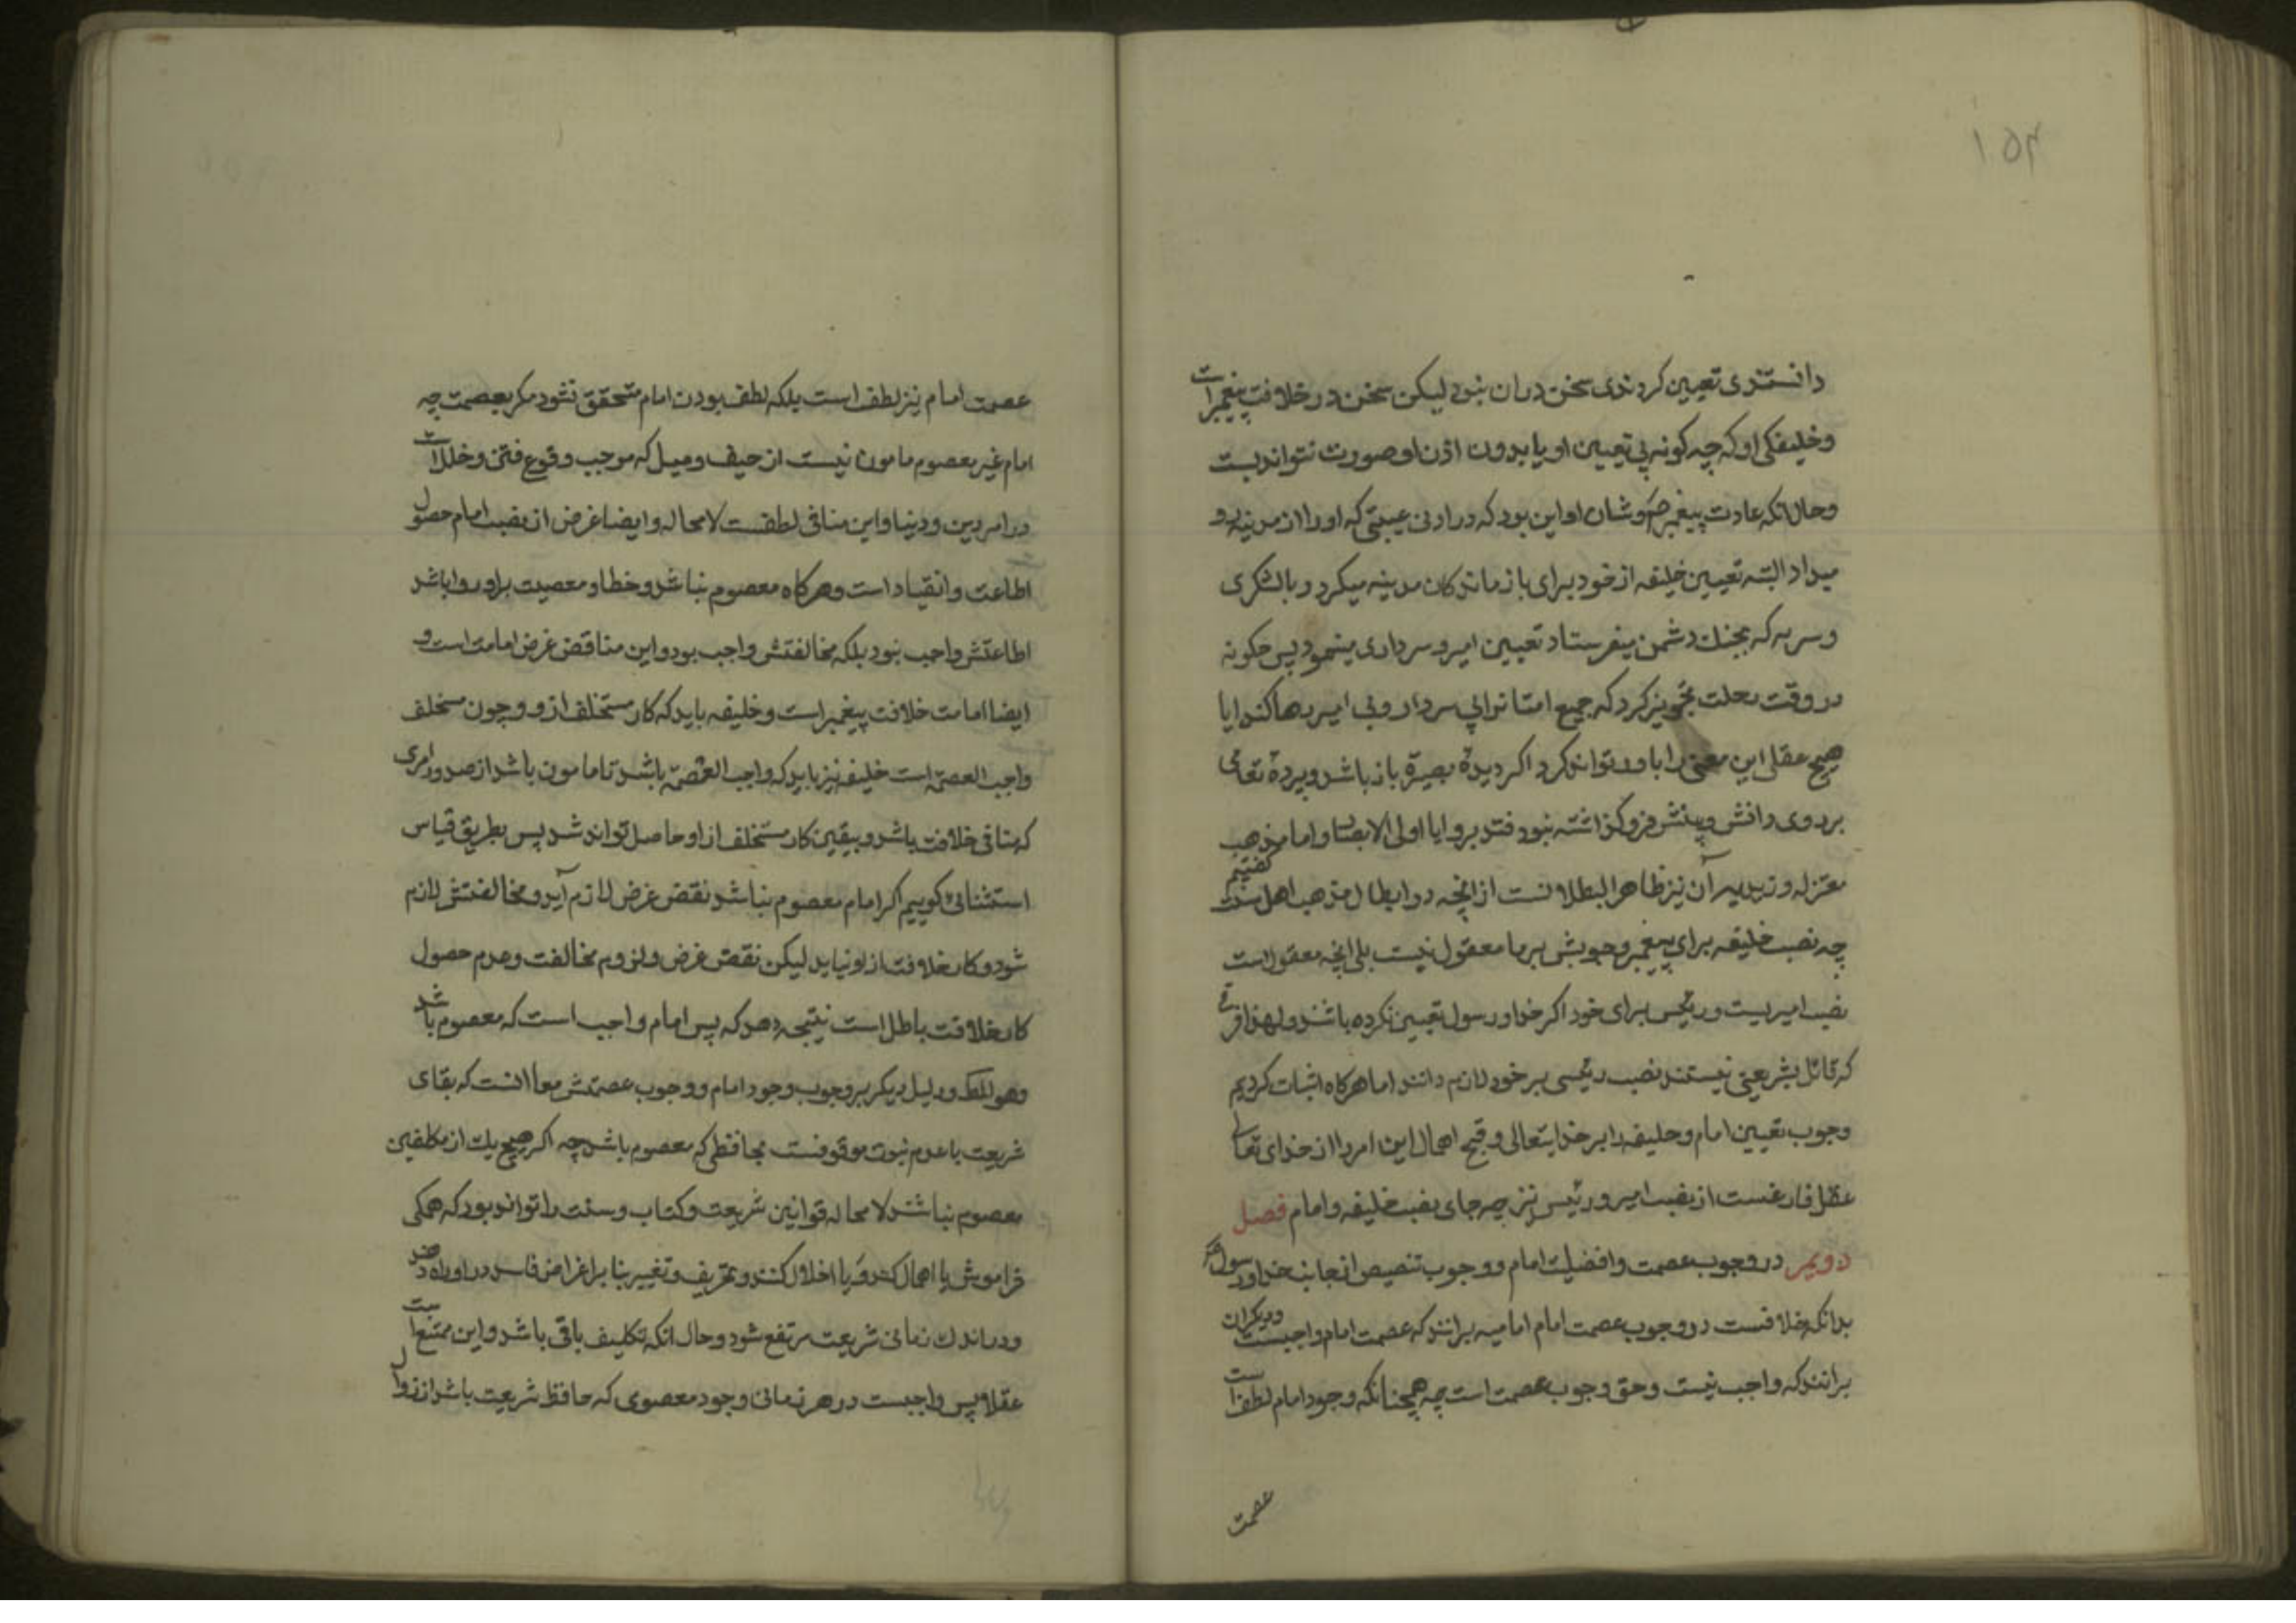 ۱۵۴
دانستندی تعیین کردندی سخن در ان نبود لیکن سخن در خلافت پیغمبر است
و خلیفکی او که چه کونه بی تعیین او یا بدون اذن او صورت نتواند بست
و حال انکه عادت پیغمبر ص و شان او این بود که در ادنی غیبتی که او را از مدینه رو
میداد البته تعیین خلیفه از خود برای بازماندکان مدینه میکرد و با لشکری
و سریه که بجنك دشمن میفرستاد تعیین امیر و سرداری مینمود پس چکونه
در وقت رحلت تجویز کرد که جمیع امت را بی سردار و بی امیر رها کند ایا
هیچ عقلی این معنی را باور تواند کرد اکر دیدهٔ بصیرة باز باشد و پردهٔ تعامی
بر روی دانش و بینش فرو کذاشته نبود فتدبروا یا اولی الابصار و اما مذهب
معتزله و زیدیه آن نیز ظاهر البطلانست از انچه در ابطال مذهب اهل سنت کفتیم
چه نصب خلیفه برای پیغمبر وجوبش بر ما معقول نیست بلی انچه معقول است
نصب امیریست و رئیس برای خود اکر خدا و رسول تعیین نکرده باشند و لهذا فرقی
که قائل بشریعتی نیستند نصب رئیسی بر خود لازم دانند اما هر کاه اثبات کردیم
وجوب تعیین امام و خلیفه را بر خدایتعالی و قبح اهمال این امر را از خدای تعالی
عقل فارغست از نصب امیر و رئیس نیز چه جای نصب خلیفه و امام فصل
دویم در وجوب عصمت و افضلیت امام و وجوب تنصیص از جانب خدا و رسول
بدانکه خلافست در وجوب عصمت امام امامیه برانند که عصمت امام واجبست و دیکران
برانند که واجب نیست و حق وجوب عصمت است چه همچنانکه وجود امام لطف است
عصمت
عصمت امام نیز لطف است بلکه لطف بودن امام متحقق نشود مکر بعصمت چه
امام غیر معصوم مامون نیست از حیف و میل که موجب وقوع فتن و خلل است
در امر دین و دنیا و این منافی لطفست لا محاله و ایضا غرض از نصب امام حصول
اطاعت و انقیاد است و هر کاه معصوم نباشد و خطا و معصیت بر او روا باشد
اطاعتش واجب نبود بلکه مخالفتش واجب بود و این مناقض غرض امامت است و
ایضا امامت خلافت پیغمبر است و خلیفه باید که کار مستخلف ازو و چون مستخلف
واجب العصمة است خلیفه نیز باید که واجب العصمة باشد تا مامون باشد از صدور امری
که منافی خلافت باشد و بیقین کار مستخلف از او حاصل تواند شد پس بطریق قیاس
استثنائی کوییم اکر امام معصوم نباشد نقض غرض لازم آید و مخالفتش لازم
شود و کار خلافت از او نیاید لیکن نقض غرض و لزوم مخالفت و عدم حصول
کار خلافت باطل است نتیجه دهد که پس امام واجب است که معصوم باشد
و هو المط و دلیل دیکر بر وجوب وجود امام و وجوب عصمتش معا انست که بقای
شریعت با عدم نبوت موقوفست بحافظی که معصوم باشد چه اکر هیچ یك از مکلفین
معصوم نباشند لا محاله قوانین شریعت و کتاب و سنت را تواند بود که همکی
فراموش یا اهمال کنند و یا اخلال کنند و تحریف و تغییر بنا بر اغراض فاسد در او راه دهند
و در اندك زمانی شریعت مرتفع شود و حال انکه تکلیف باقی باشد و این ممتنع است
عقلا پس واجبست در هر زمانی وجود معصومی که حافظ شریعت باشد از زوال